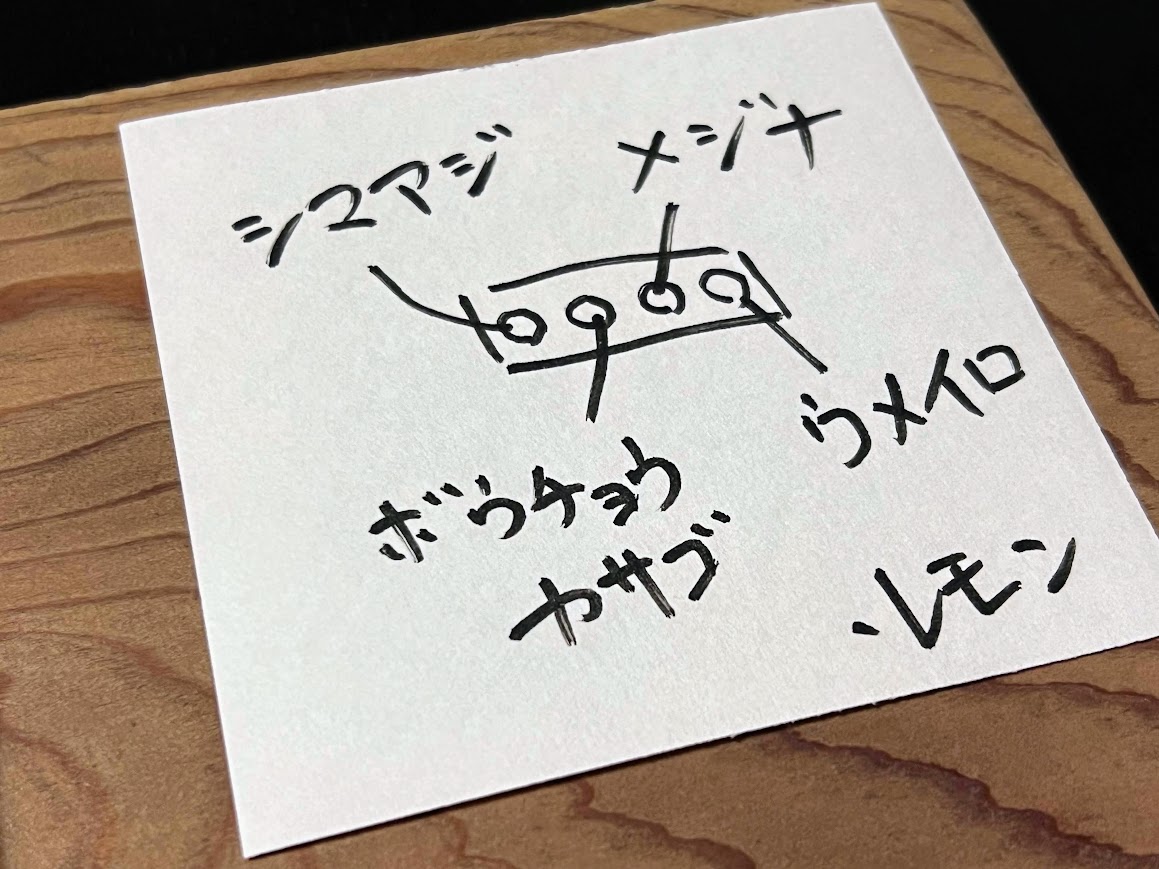 シマアジ
メジナ
ウメイロ
ボウチョウ
カサゴ
・レモン